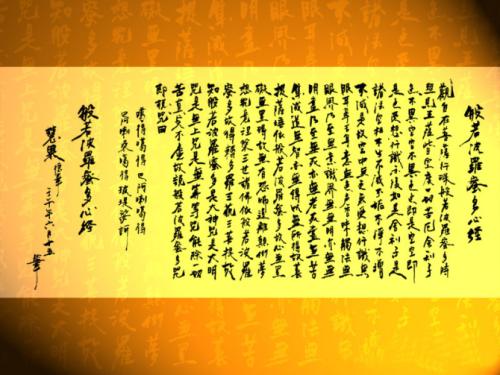 般若波羅蜜多心經
觀自在菩薩行深般若波羅蜜多時
照見五蘊皆空度一切苦厄舍利子
色不異空空不異色色即是空空即
是色受想行識亦復如是舍利子是
諸法空相不生不滅不垢不淨不增
不減是故空中無色無受想行識無
眼耳鼻舌身意無色聲香味觸法無
眼界乃至無意識界無無明亦無無
明盡乃至無老死亦無老死盡無苦
集滅道無智亦無得以無所得故菩
提薩埵依般若波羅蜜多故心無罣
礙無罣礙故無有恐怖遠離顛倒夢
想究竟涅槃三世諸佛依般若波羅
蜜多故得耨多羅三藐三菩提故
知般若波羅蜜多是大神咒是大明
咒是無上咒是無等等咒能除一切
苦真實不虛故說般若波羅蜜多咒
即說咒曰
喝得喝得 喝得
喝得 娑訶
般若波羅蜜多心經
慧果
年六月十五